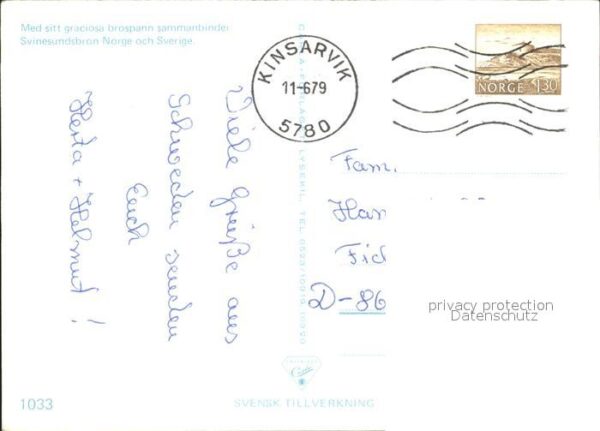 Med sitt graciösa brospann sammanbinder
Svinesundsbron Norge och Sverige.
KINSARVIK
11-6.79
5780
NORGE 1.30
Viele Grüße aus
Schweden senden
Euch
Herta + Helmut!
Fam.
Han
Fid
D-86
privacy protection
Datenschutz
LYSEKIL, TEL. 0523/10019, 10200
1033
SVENSK TILLVERKNING